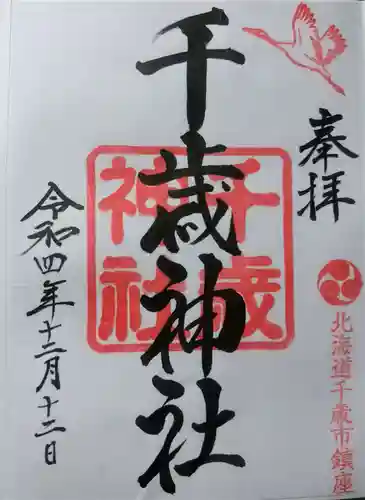 奉拝
北海道千歳市鎮座
千歳神社
千歳神社
令和四年十二月十二日